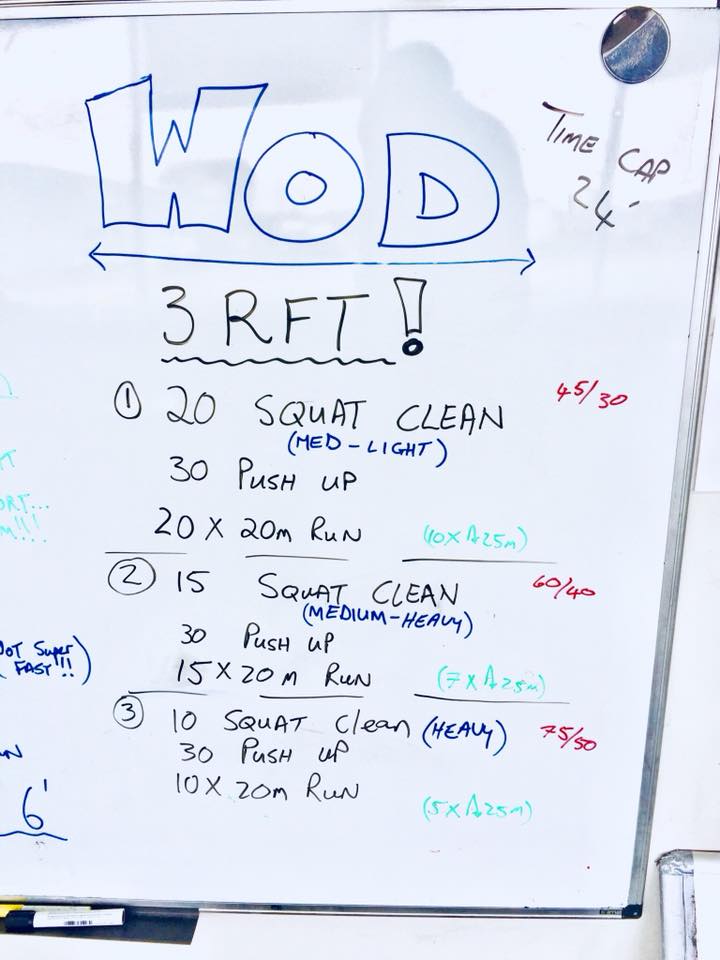 WOD
TIME CAP
24'
3 RFT!
① 20 SQUAT CLEAN 45/30
(MED-LIGHT)
30 PUSH UP
20 X 20m RUN (10 X 25m)
② 15 SQUAT CLEAN 60/40
(MEDIUM-HEAVY)
30 PUSH UP
15 X 20m RUN (7 X 25m)
③ 10 SQUAT Clean (HEAVY) 75/50
30 PUSH UP
10 X 20m RUN
(5 X 25m)
NOT Super
FAST!!)
6'